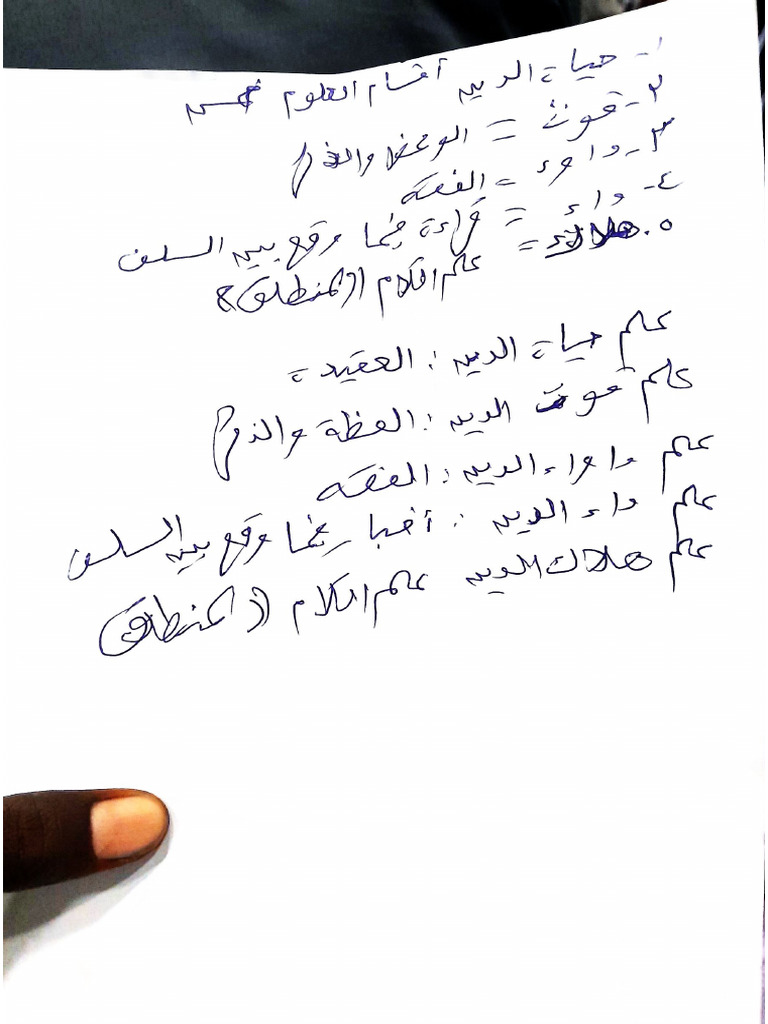 ١- حياة الدين أقسام العلوم خمس
٢- قوت = الوعظ والذكر
٣- دواء = الفقه
٤- داء = قراءة فيما وقع بين السلف
٥. هلاك = علم الكلام (المنطق)
علم حياة الدين : العقيدة
علم قوت الدين : العظة والذكر
علم دواء الدين : الفقه
علم داء الدين : أخبار فيما وقع بين السلف
علم هلاك الدين علم الكلام (المنطق)